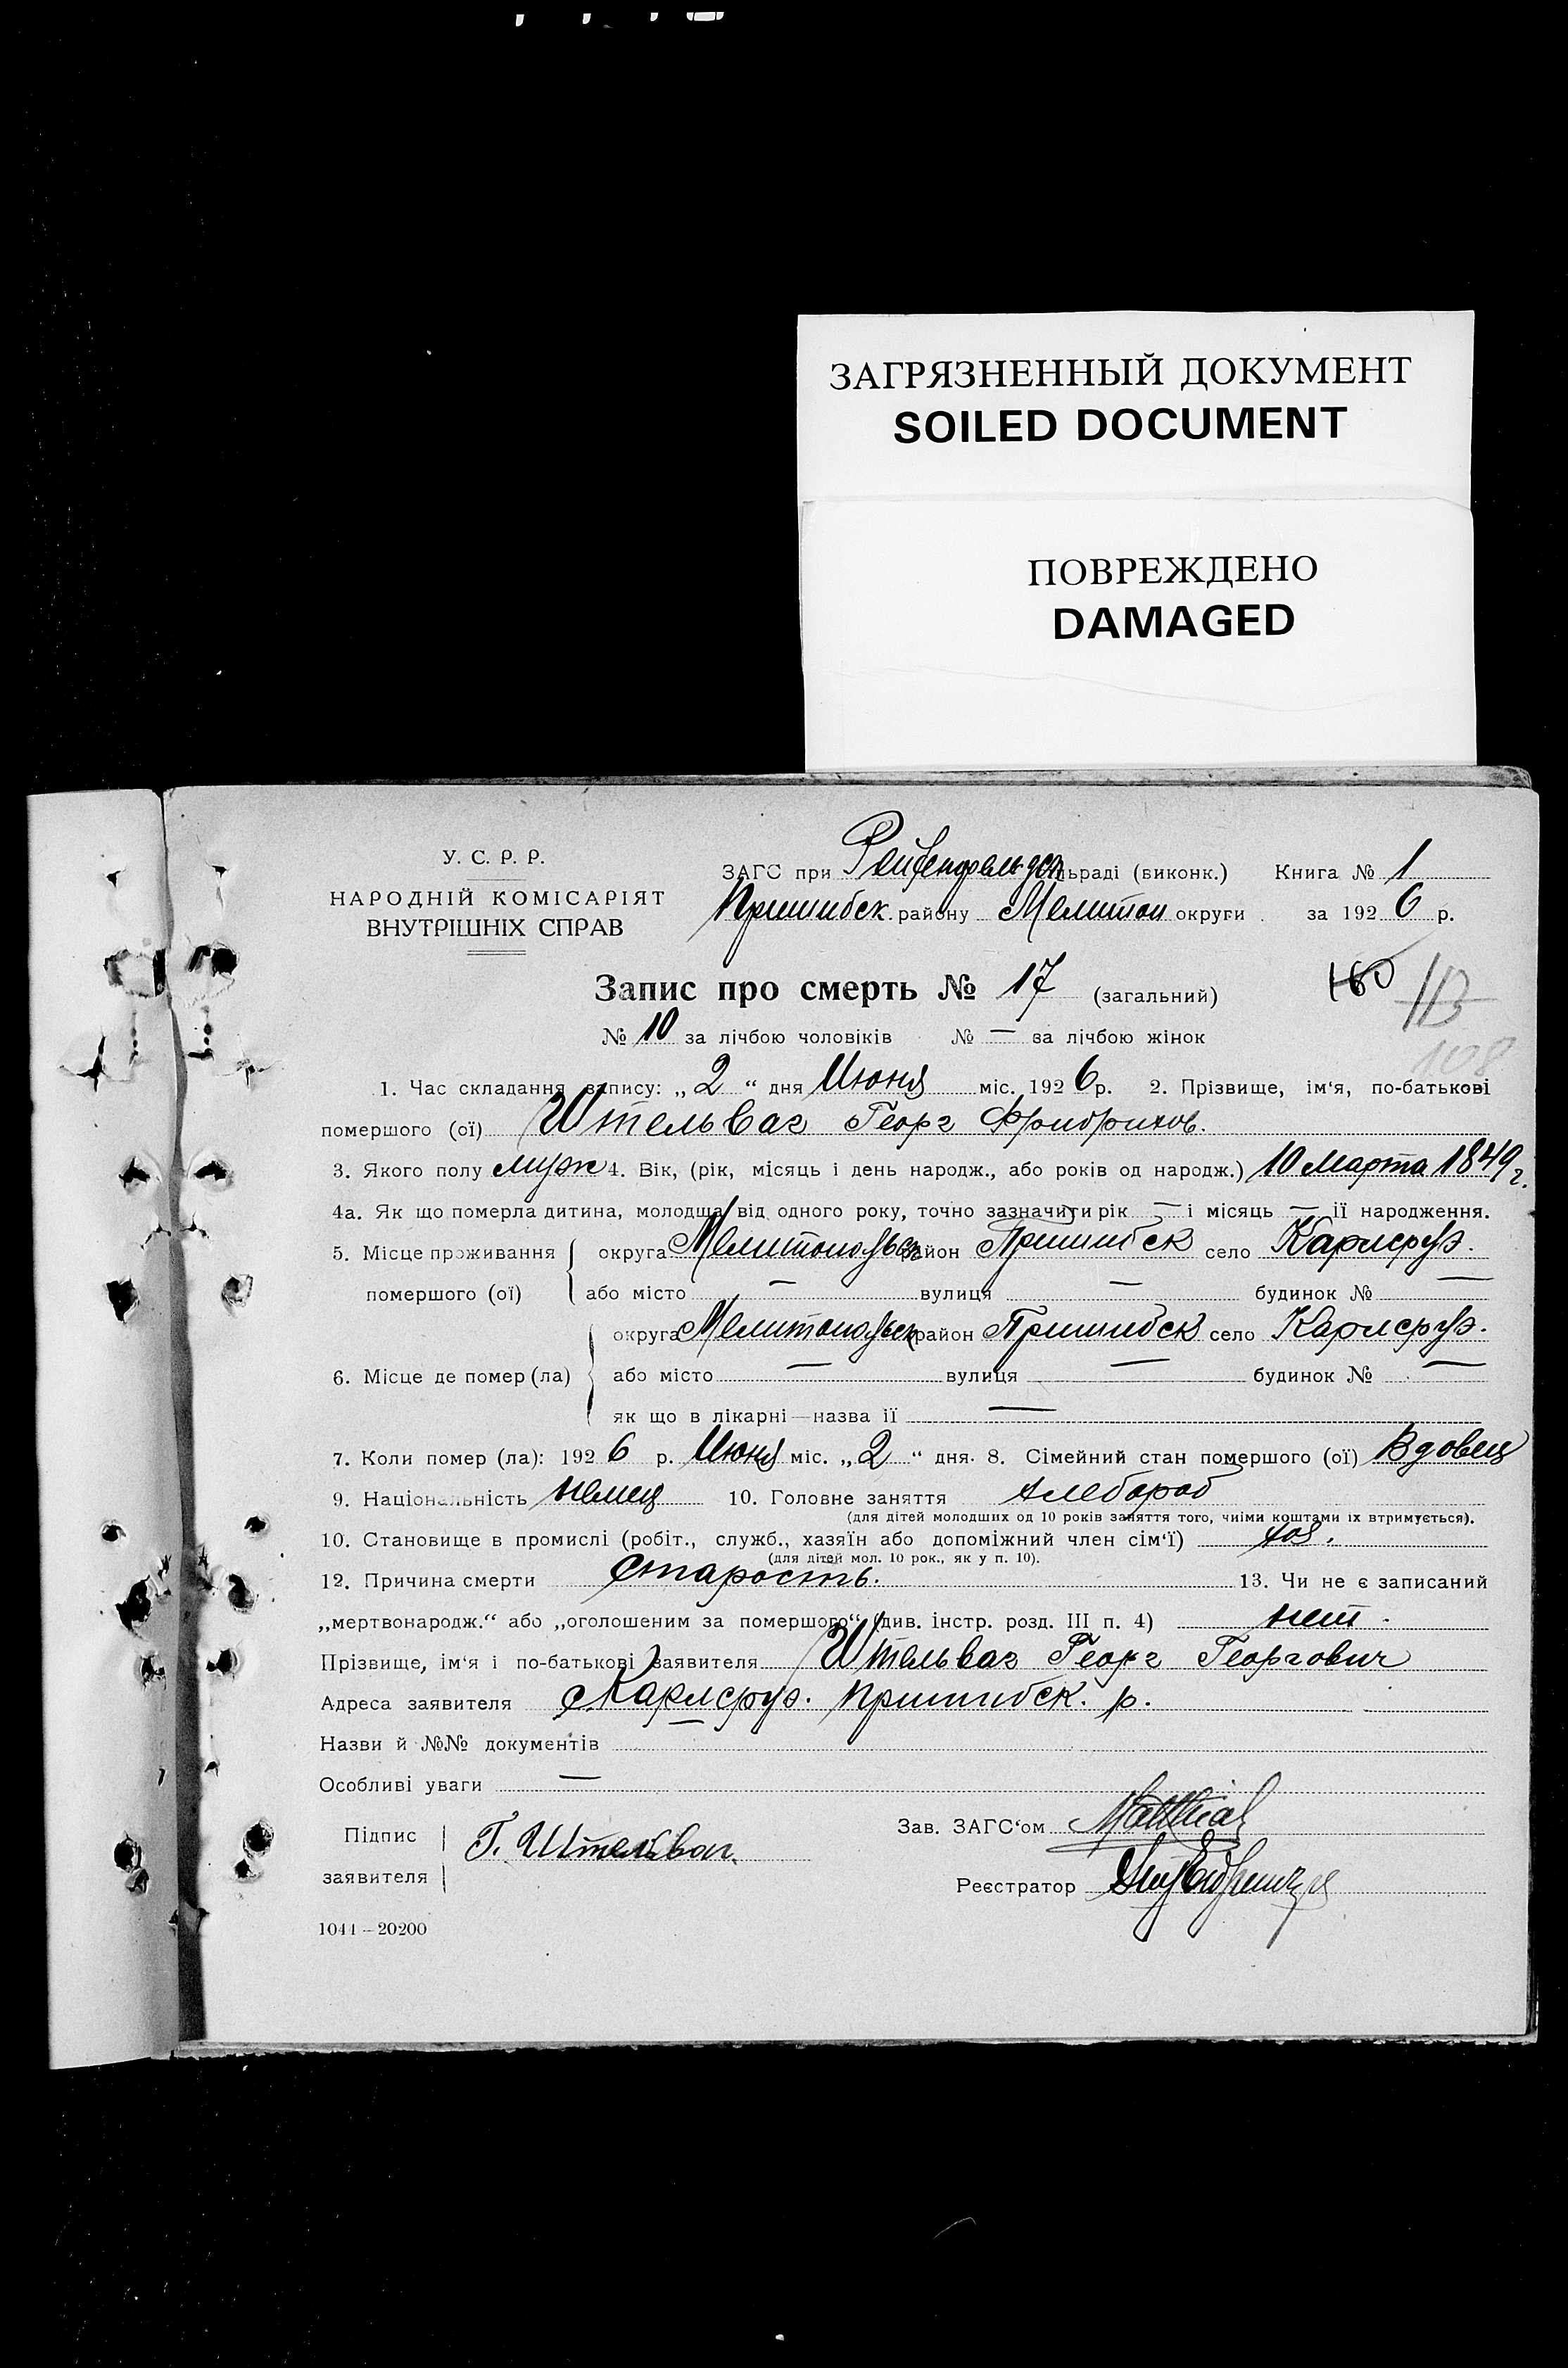 ЗАГРЯЗНЕННЫЙ ДОКУМЕНТ
SOILED DOCUMENT
ПОВРЕЖДЕНО
DAMAGED
У. С. Р. Р.
НАРОДНІЙ КОМІСАРІЯТ
ВНУТРІШНІХ СПРАВ
ЗАГС при Рейхенфельдск льраді (виконк.) Книга № 1
Пришибск. району Мелитоп округи за 1926 р.
Запис про смерть № 17 (загальний)
160
113
108
№ 10 за лічбою чоловіків № — за лічбою жінок
1. Час складання запису: „2“ дня Июня міс. 1926 р. 2. Прізвище, ім‘я, по-батькові
помершого (ої) Штельваг Георг Фридрихов.
3. Якого полу муж 4. Вік, (рік, місяць і день народж., або років од народж.) 10 Марта 1849 г.
4а. Як що померла дитина, молодша від одного року, точно зазначити рік — і місяць — її народження.
5. Місце проживання округа Мелитопольск район Пришибск село Карлсруэ.
помершого (ої) або місто — вулиця — будинок № —
округа Мелитопольск район Пришибск село Карлсруэ.
6. Місце де помер (ла) або місто — вулиця — будинок № —
як що в лікарні—назва її —
7. Коли помер (ла): 1926 р. Июня міс. „2“ дня. 8. Сімейний стан помершого (ої) Вдовец
9. Національність немец 10. Головне заняття хлебороб
(для дітей молодших од 10 років заняття того, чиїми коштами їх втримується).
10. Становище в промислі (робіт., служб., хазяїн або допоміжний член сім‘ї) хоз.
(для дітей мол. 10 рок., як у п. 10).
12. Причина смерти старость. 13. Чи не є записаний
„мертвонародж.“ або „оголошеним за помершого“ (див. інстр. розд. III п. 4) нет.
Прізвище, ім‘я і по-батькові заявителя Штельваг Георг Георгович
Адреса заявителя с. Карлсруэ. Пришибск. р.
Назви й №№ документів —
Особливі уваги —
Підпис
заявителя
Г. Штельваг.
Зав. ЗАГС‘ом
Реєстратор
1041—20200